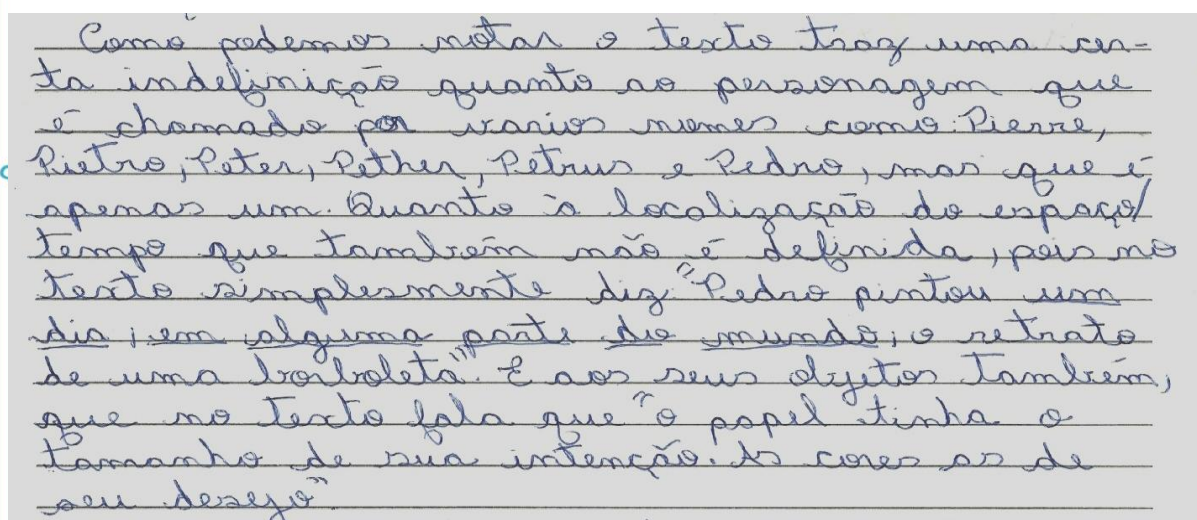 Como podemos notar o texto traz uma cer-
ta indefinição quanto ao personagem que
é chamado por varios nomes como: Pierre,
Pietro, Peter, Pether, Petrus e Pedro, mas que é
apenas um. Quanto à localização do espaço/
tempo que também não é definida, pois no
texto simplesmente diz: "Pedro pintou um
dia, em alguma parte do mundo, o retrato
de uma borboleta". E aos seus objetos também,
que no texto fala que "o papel tinha o
tamanho de sua intenção. As cores as de
seu desejo"